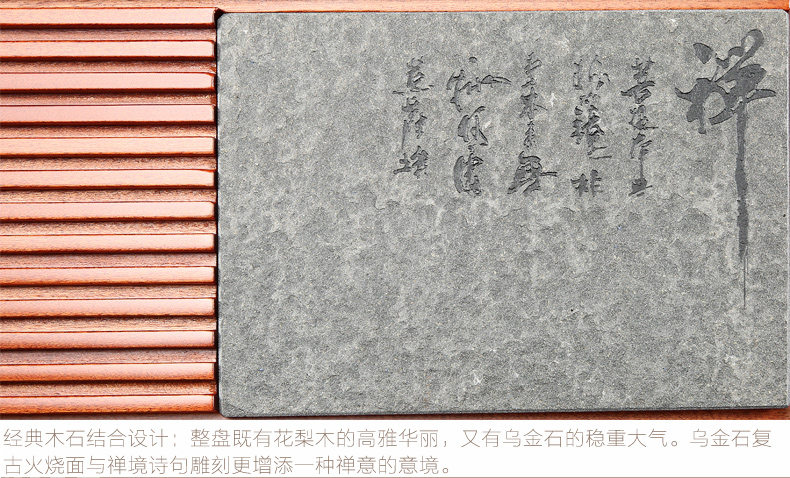 禅
菩提本无
经典木石结合设计：整盘既有花梨木的高雅华丽，又有乌金石的稳重大气。乌金石复
古火烧面与禅境诗句雕刻更增添一种禅意的意境。